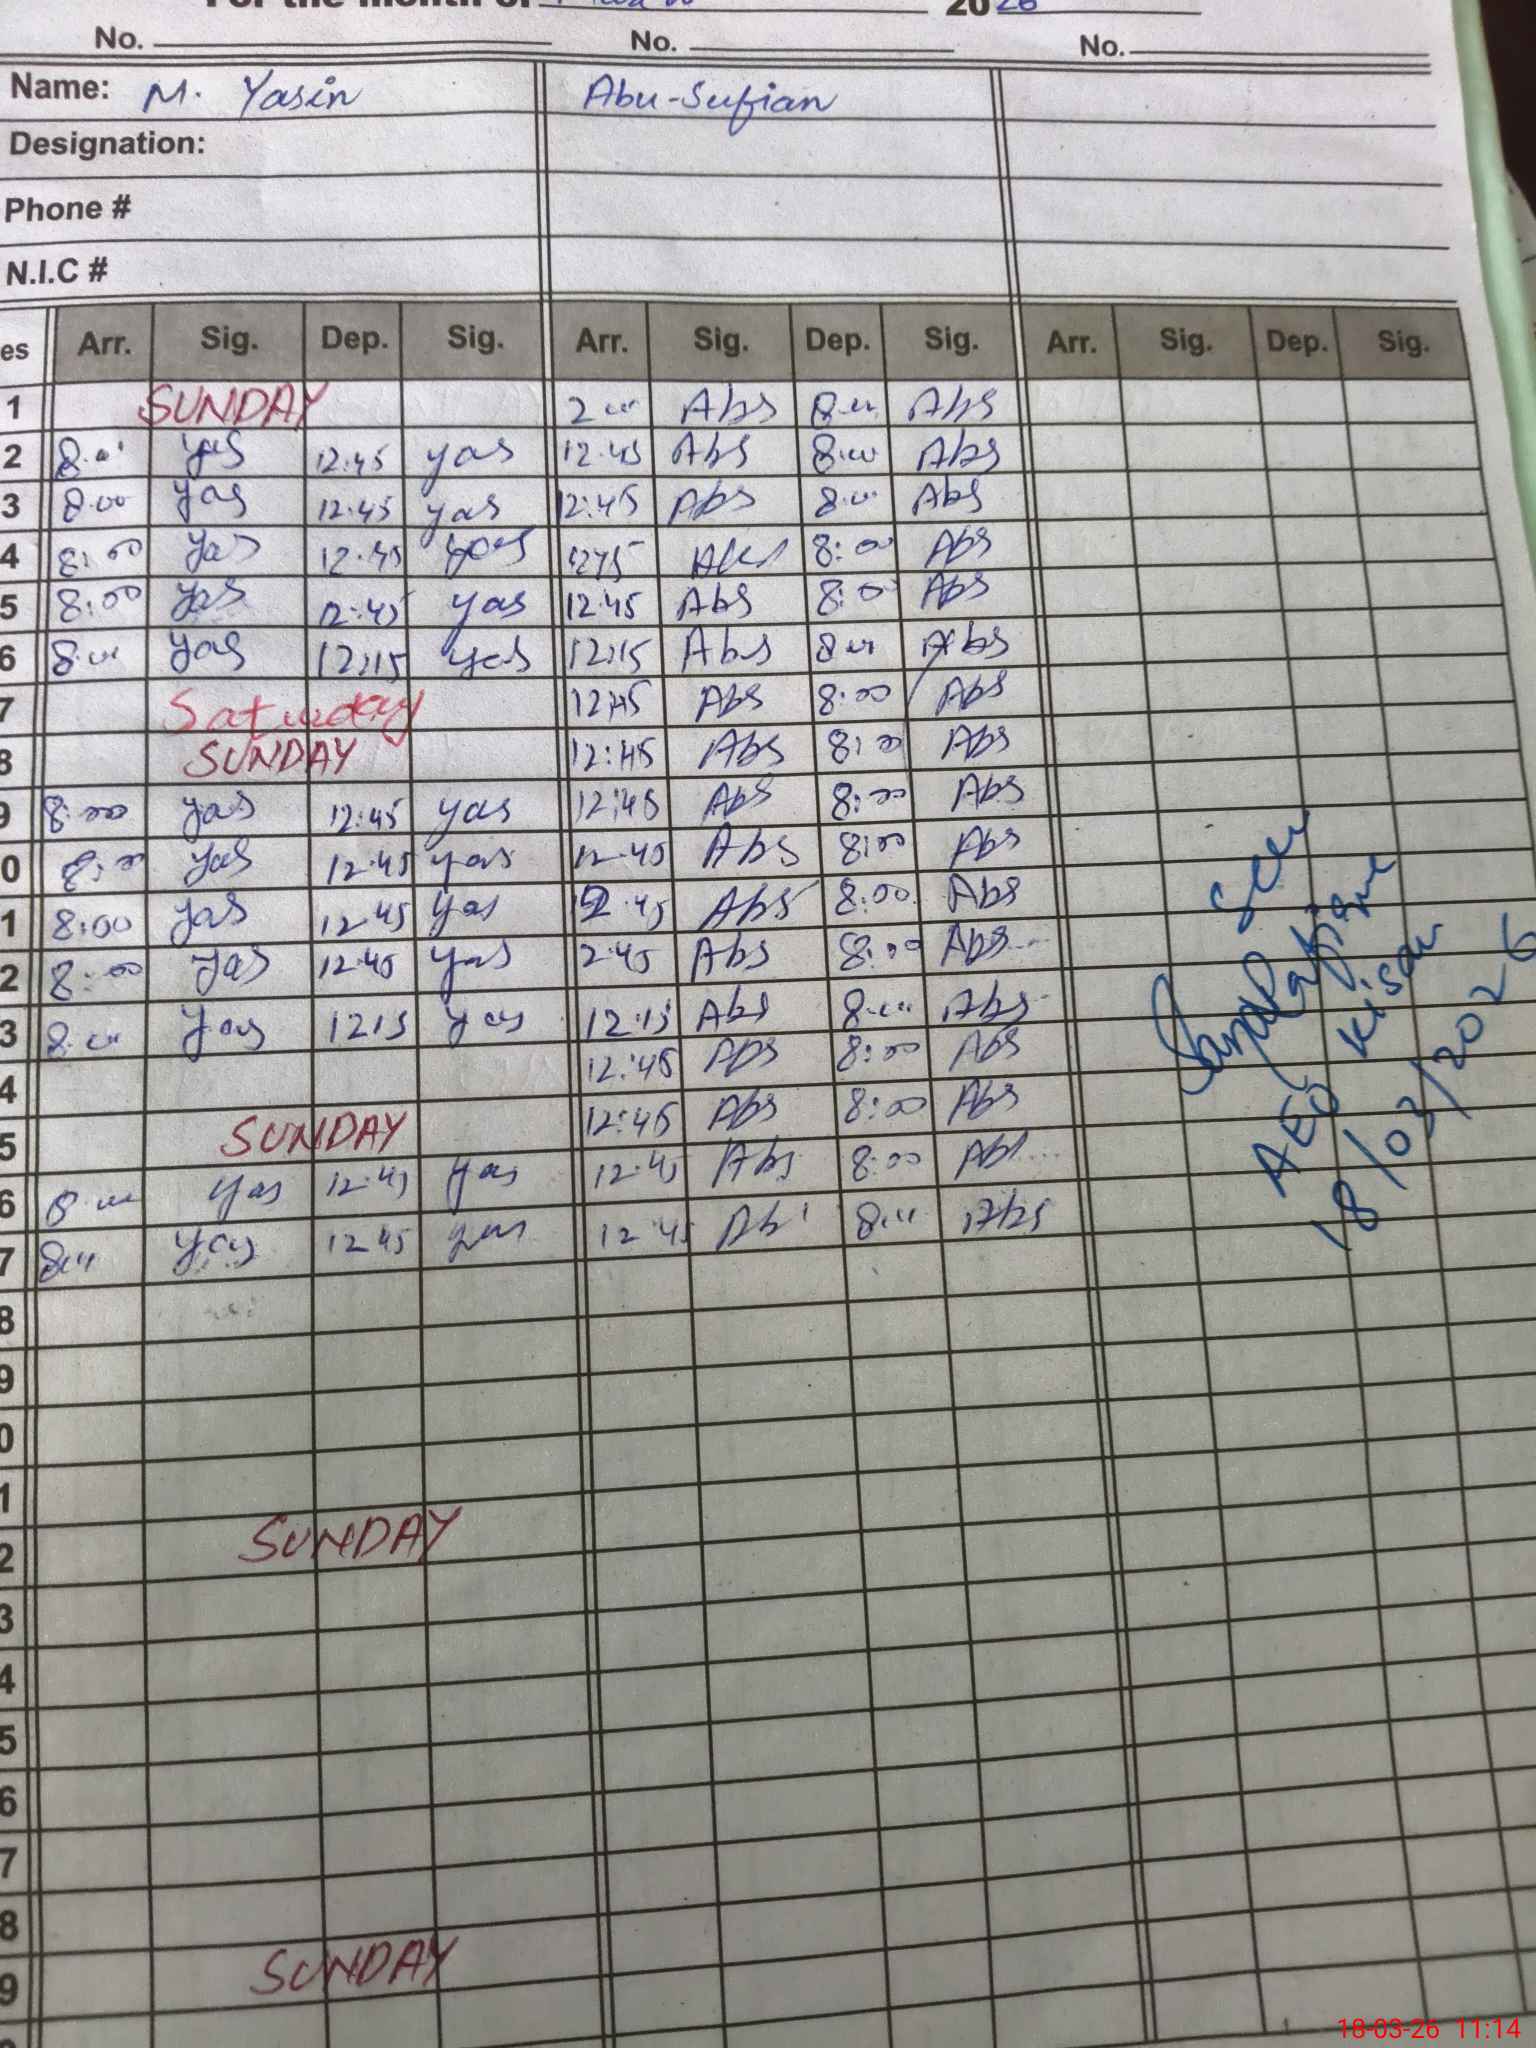 For the month of March 2026
No. No. No.
Name: M. Yasin Abu-Sufian
Designation:
Phone #
N.I.C #
es Arr. Sig. Dep. Sig. Arr. Sig. Dep. Sig. Arr. Sig. Dep. Sig.
1 SUNDAY 2 00 Abs 8:00 Abs
2 8:00 yas 12:45 yas 12:45 Abs 8:00 Abs
3 8:00 yas 12:45 yas 12:45 Abs 8:00 Abs
4 8:00 yas 12:45 yas 1245 Abs 8:00 Abs
5 8:00 yas 12:45 yas 12:45 Abs 8:00 Abs
6 8:00 yas 12:15 yas 12:15 Abs 8:00 Abs
7 Saturday 12:45 Abs 8:00 Abs
8 SUNDAY 12:45 Abs 8:00 Abs
9 8:00 yas 12:45 yas 12:45 Abs 8:00 Abs
0 8:00 yas 12:45 yas 12:45 Abs 8:00 Abs
1 8:00 yas 12:45 yas 12:45 Abs 8:00 Abs
2 8:00 yas 12:45 yas 2:45 Abs 8:00 Abs
3 8:00 yas 1215 yas 12:15 Abs 8:00 Abs
4 12:45 Abs 8:00 Abs
5 SUNDAY 12:45 Abs 8:00 Abs
6 8:00 yas 12:45 yas 12:45 Abs 8:00 Abs
7 8:00 yas 12 45 yas 12 45 Abs 8:00 Abs
8
9
0
1
2 SUNDAY
3
4
5
6
7
8
9 SUNDAY
Seen
AEO Kisan
18/03/2026
18-03-26 11:14